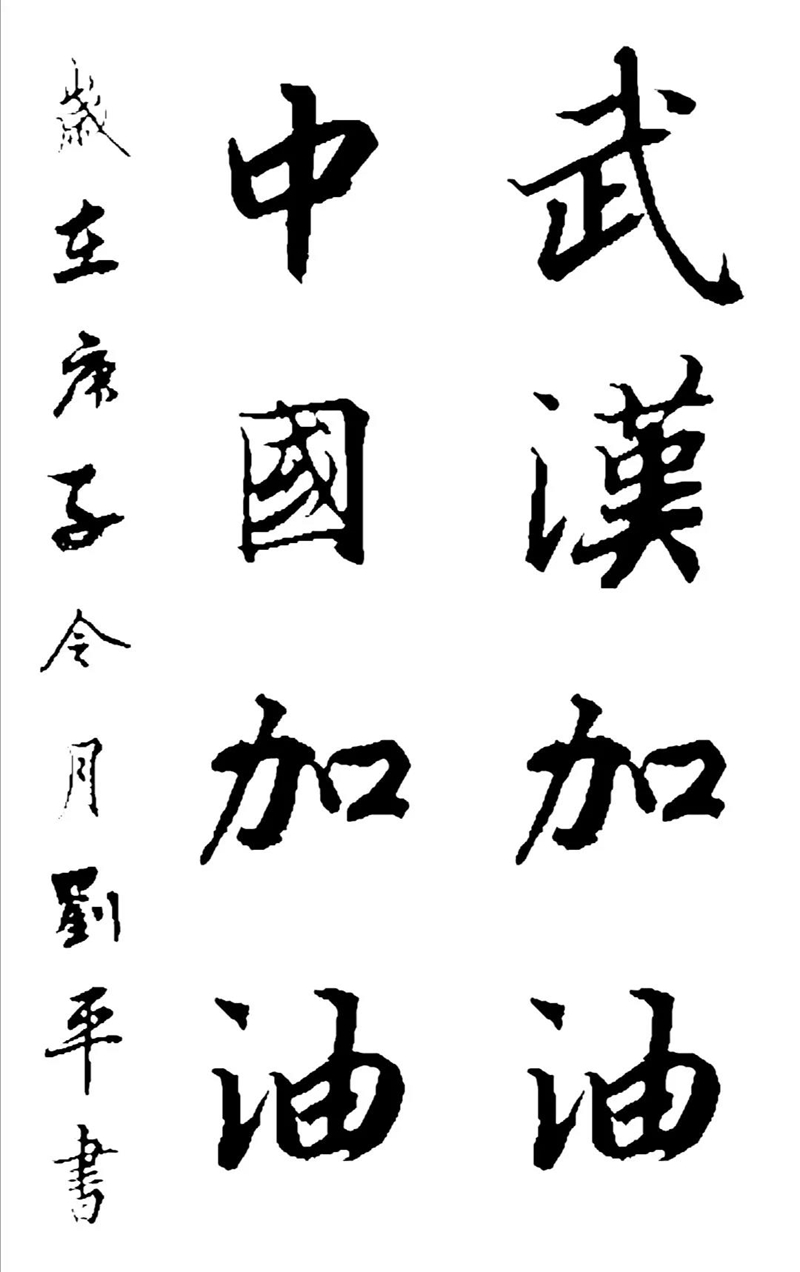 武漢加油
中國加油
歲在庚子令月劉平書